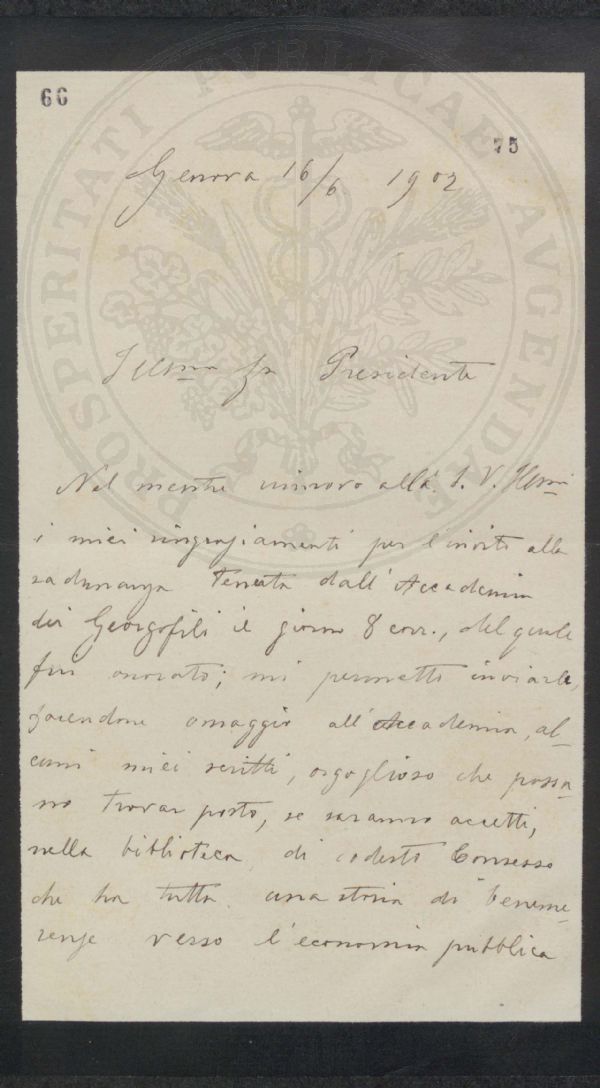 66
75
PROSPERITATI PVBLICAE AVGENDAE
Genova 16/6 1902
Illmo Sr Presidente
Nel mentre rinnovo alla S. V. Illmi
i miei ringraziamenti per l'invito alla
radunanza tenuta dall'Accademia
dei Georgofili il giorno 8 corr., del quale
fui onorato; mi permetto inviarle,
facendone omaggio all'Accademia, al-
cuni miei scritti, orgoglioso che possa-
no trovar posto, se saranno accetti,
nella biblioteca di codesto Consesso
che ha tutta una storia di beneme-
renze verso l'economia pubblica